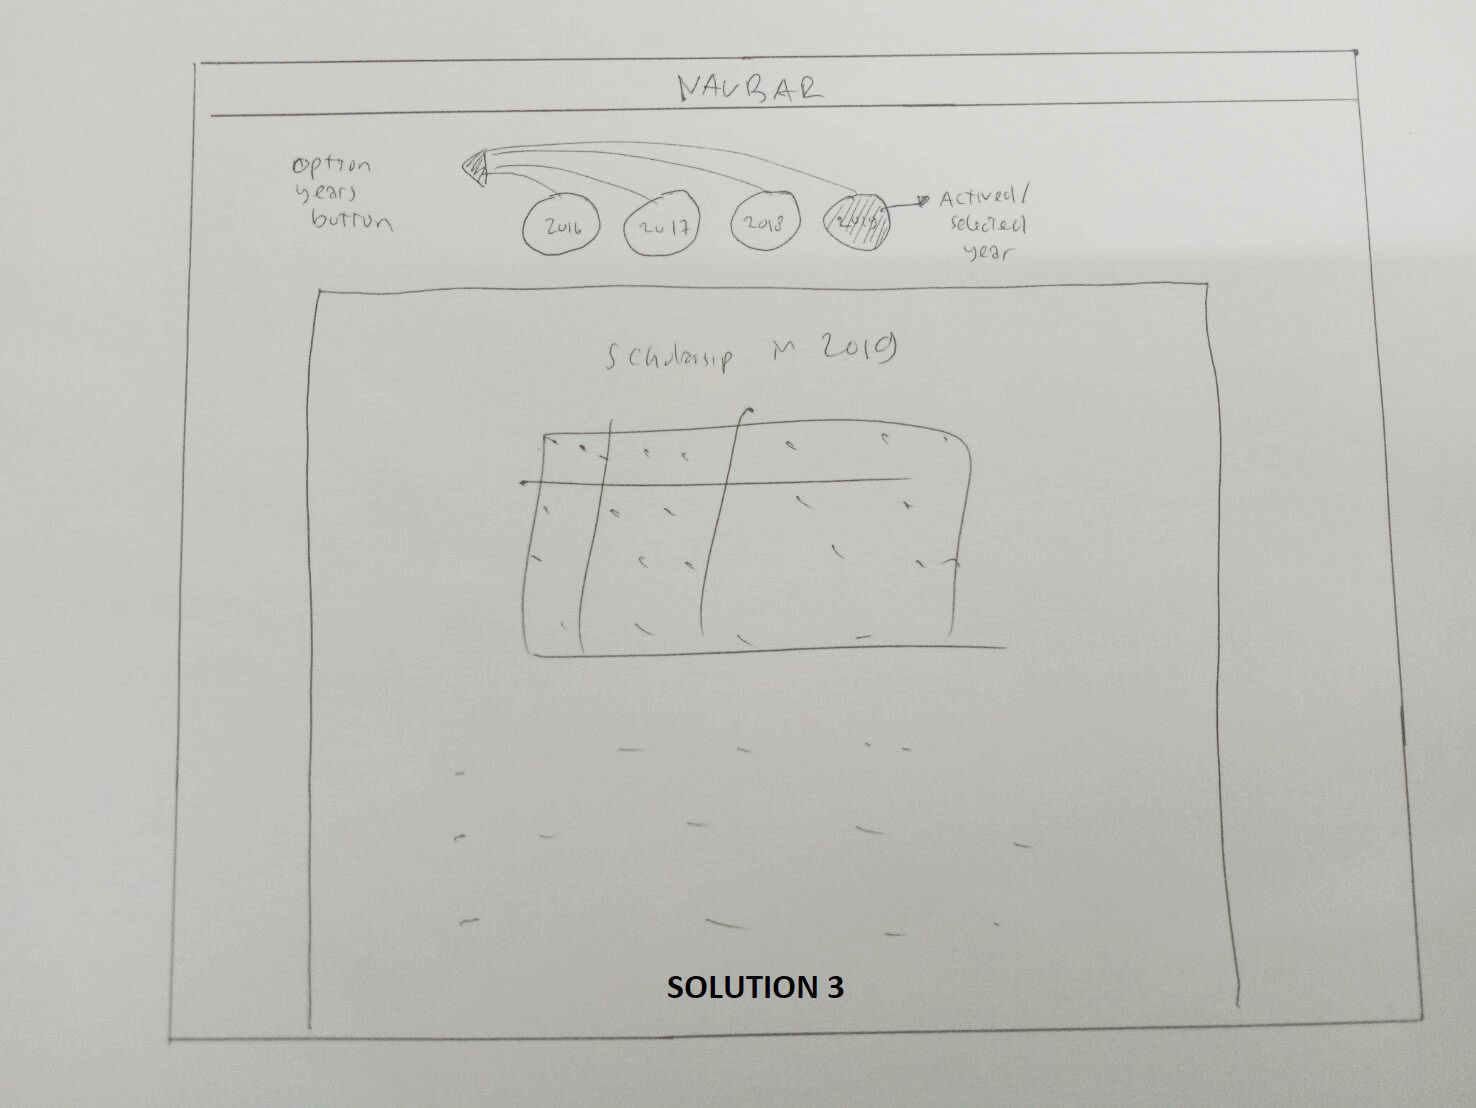 NAVBAR
option
years
button
2016
2017
2018
2019
Actived/
selected
year
Scholarsip in 2019
SOLUTION 3